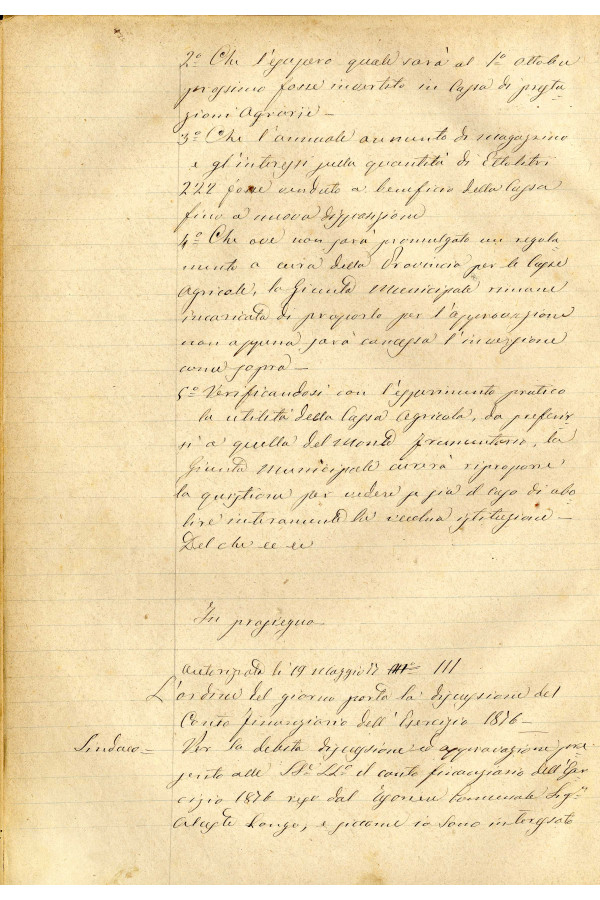 2º Che l'egugero quale sarà al 1º Ottobre
prossimo fosse invertito in Cassa di presta
zioni Agrarie –
3º Che l'annuale aumento di Magazzino
e gl'interessi sulla quantità di Ettolitri
222 fosse venduto a beneficio della Cassa
fino a nuova disposizione
4º Che ove non sarà promulgato un regola
mento a cura della Provincia per le Casse
Agricole, la Giunta Municipale rimane
incaricata di proporlo per l'approvazione
non appena sarà concessa l'invezione
come sopra –
5º Verificandosi con l'esperimento pratico
la utilità della Cassa Agricola, da preferir
si a quella del Monte frumentario, la
Giunta Municipale curerà riproporre
la quistione per vedere se sia il caso di abo
lire interamente la vecchia istituzione –
Del che ec ec
In prosieguo
Autorizzata li 19 Maggio 77 III
L'ordine del giorno porta la discussione del
Conto finanziario dell'Esercizio 1876 –
Sindaco = Per la debita discussione ed approvazione pre
sento alle SS.ᵉ LL.ᵉ il conto finanziario dell'Eser
cizio 1876 reso dal Comunale Sig.ʳ
Longo, e siccome io sono interessato